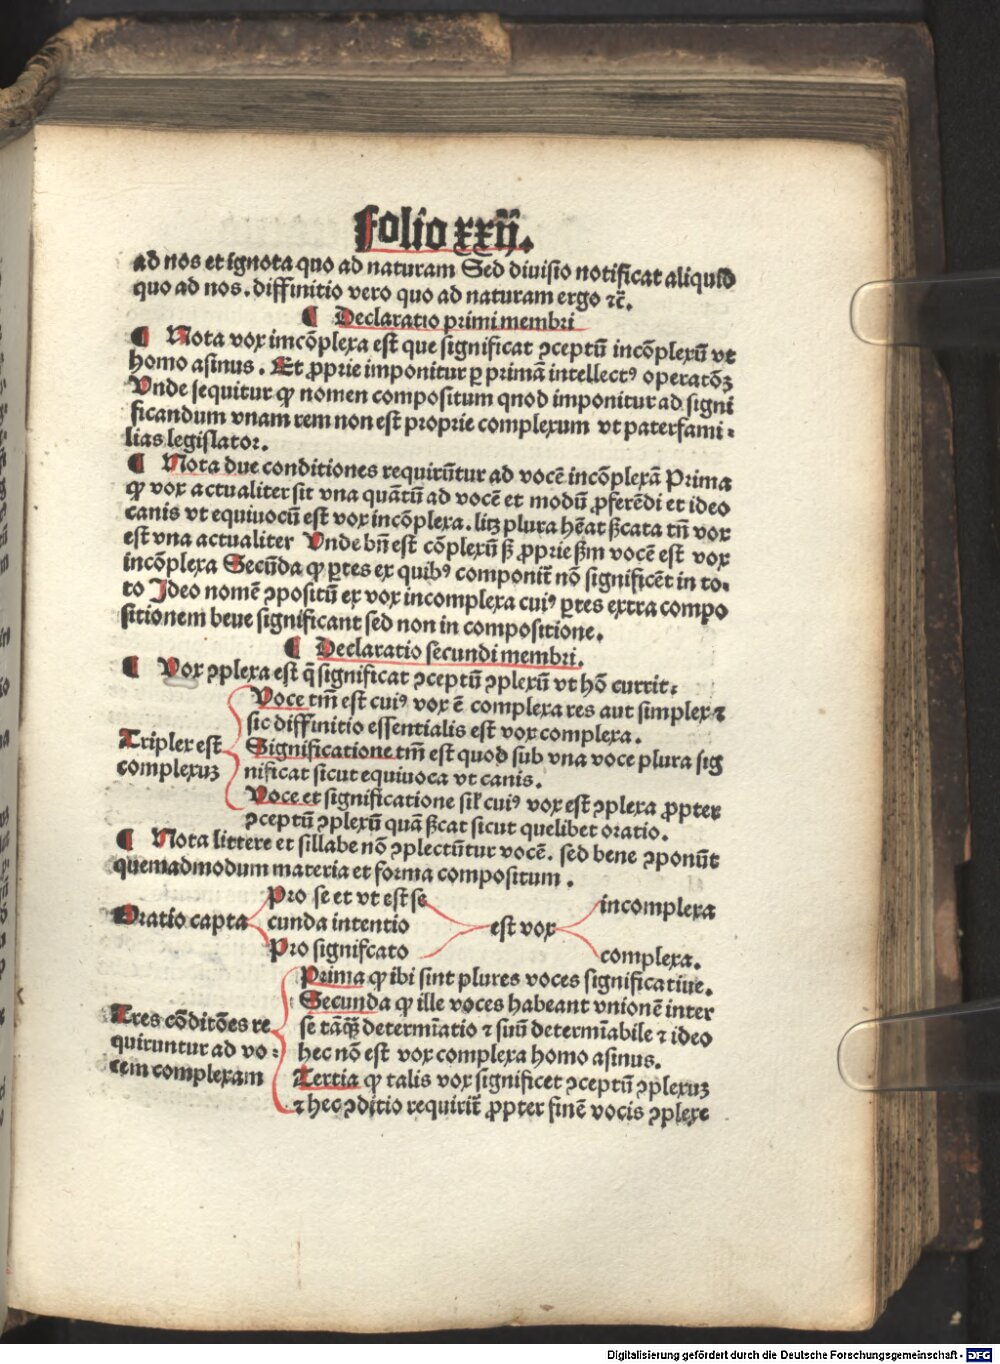 folio xxij.
ad nos et ignota quo ad naturam Sed diuisio notificat aliquid
quo ad nos. diffinitio vero quo ad naturam ergo ⁊c̄.
¶ Declaratio primi membri
¶ Nota vox imcōplexa est que significat ꝯceptū incōplexū vt
homo asinus. Et ꝓprie imponitur ꝑ primā intellectꝰ operatōꝫ
Vnde sequitur ꝙ nomen compositum qnod imponitur ad signi
ficandum vnam rem non est proprie complexum vt paterfami⸗
lias legislator.
¶ Nota due conditiones requirūtur ad vocē incōplexā Prima
ꝙ vox actualiter sit vna quātū ad vocē et modū ꝓferēdi et ideo
canis vt equiuocū est vox incōplexa. licꝫ plura hēat ßcata tñ vox
est vna actualiter Vnde bñ est cōplexū ß ꝓprie ßm vocē est vox
incōplexa Secūda ꝙ ꝑtes ex quibꝰ componit̄ nō significēt in to⸗
to Ideo nomē ꝯpositū ex vox incomplexa cuiꝰ ꝑtes extra compo
sitionem beue significant sed non in compositione.
¶ Declaratio secundi membri.
¶ Vox ꝯplexa est q̄ significat ꝯceptū ꝯplexū vt hō currit.
Triplex est
complexuꝫ
Voce tm̄ est cuiꝰ vox ē complexa res aut simplex ⁊
sic diffinitio essentialis est vox complexa.
Significatione tm̄ est quod sub vna voce plura sig
nificat sicut equiuoca vt canis.
Voce et significatione sil̄ cuiꝰ vox est ꝯplexa ꝓpter
ꝯceptū ꝯplexū quā ßcat sicut quelibet oratio.
¶ Nota littere et sillabe nō ꝯplectūtur vocē. sed bene ꝯponūt
quemadmodum materia et forma compositum.
Oratio capta
Pro se et vt est se
cunda intentio
Pro signifcato
est vox
incomplexa
complexa.
Tres cōditōes re
quiruntur ad vo⸗
cem complexam
Prima ꝙ ibi sint plures voces significatiue.
Secunda ꝙ ille voces habeant vnionē inter
se tāꝗ̃ determīatio ⁊ suū determīabile ⁊ ideo
hec nō est vox complexa homo asinus.
Tertia ꝙ talis vox significet ꝯceptū ꝯplexuꝫ
⁊ hec ꝯditio requirit̄ ꝓpter finē vocis ꝯplexe
Digitalisierung gefördert durch die Deutsche Forschungsgemeinschaft - DFG